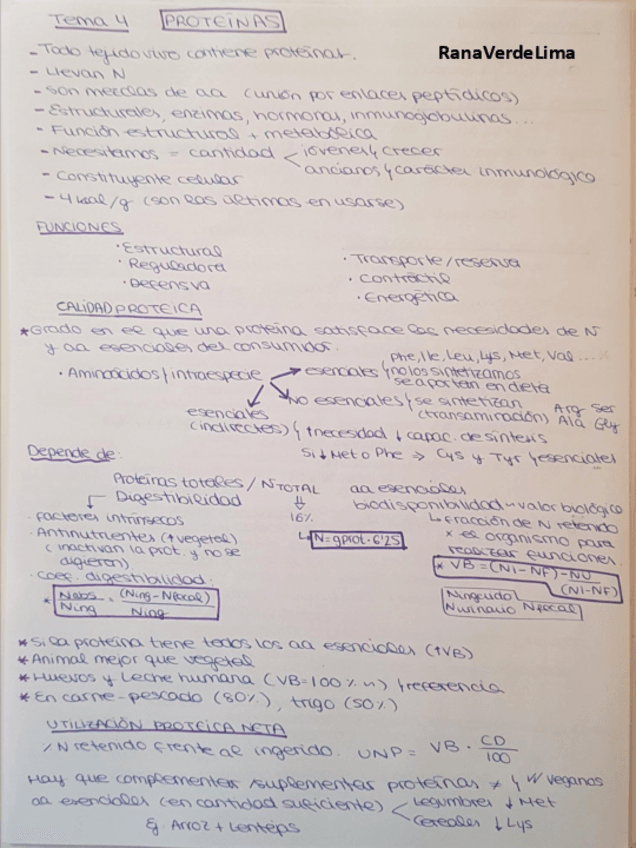 Tema 4 PROTEÍNAS
RanaVerdeLima
- Todo tejido vivo contiene proteínas.
- Llevan N
- Son mezclas de aa (unión por enlaces peptídicos)
- Estructurales, enzimas, hormonas, inmunoglobulinas...
- Función estructural + metabólica
- Necesitamos = cantidad < jóvenes y crecer
ancianos y carácter inmunológico
- Constituyente celular
- 4 kcal/g (son las últimas en usarse)
FUNCIONES
· Estructural
· Reguladora
· Defensiva
· Transporte/reserva
· Contráctil
· Energética
CALIDAD PROTEICA
* Grado en el que una proteína satisface las necesidades de N
y aa esenciales del consumidor.
Phe, Ile, Leu, Lys, Met, Val ....
· Aminoácidos / intraespecie → esenciales / no los sintetizamos
se aportan en dieta
No esenciales / se sintetizan
(transaminación) Arg Ser
Ala Gly
esenciales
(indirectes) / ↑necesidad ↓ capac. de síntesis
Si ↓ Met o Phe → Cys y Tyr / esenciales
Depende de:
Proteínas totales / N TOTAL
Digestibilidad
16%
↳ N = g prot · 6'25
aa esenciales
biodisponibilidad ~ valor biológico
↳ fracción de N retenido
x el organismo para
realizar funciones.
* VB = (NI - NF) - NU
(NI - NF)
N ingerido
N urinario N fecal
· Factores intrínsecos
· Antinutrientes (↑ vegetal)
(inactivan la prot. y no se
digieren)
· Coef. digestibilidad:
* Nabs = (Ning - Nfecal)
Ning Ning
* Si la proteína tiene todos los aa esenciales (↑VB)
* Animal mejor que vegetal
* Huevos y Leche humana (VB = 100% ~) / referencia
* En carne - pescado (80%), trigo (50%)
UTILIZACIÓN PROTEICA NETA
% N retenido frente al ingerido. UNP = VB · CD
100
Hay que complementar / suplementar proteínas veganos
aa esenciales (en cantidad suficiente) < Legumbres ↓ Met
Cereales ↓ Lys
Ej. Arroz + Lentejas